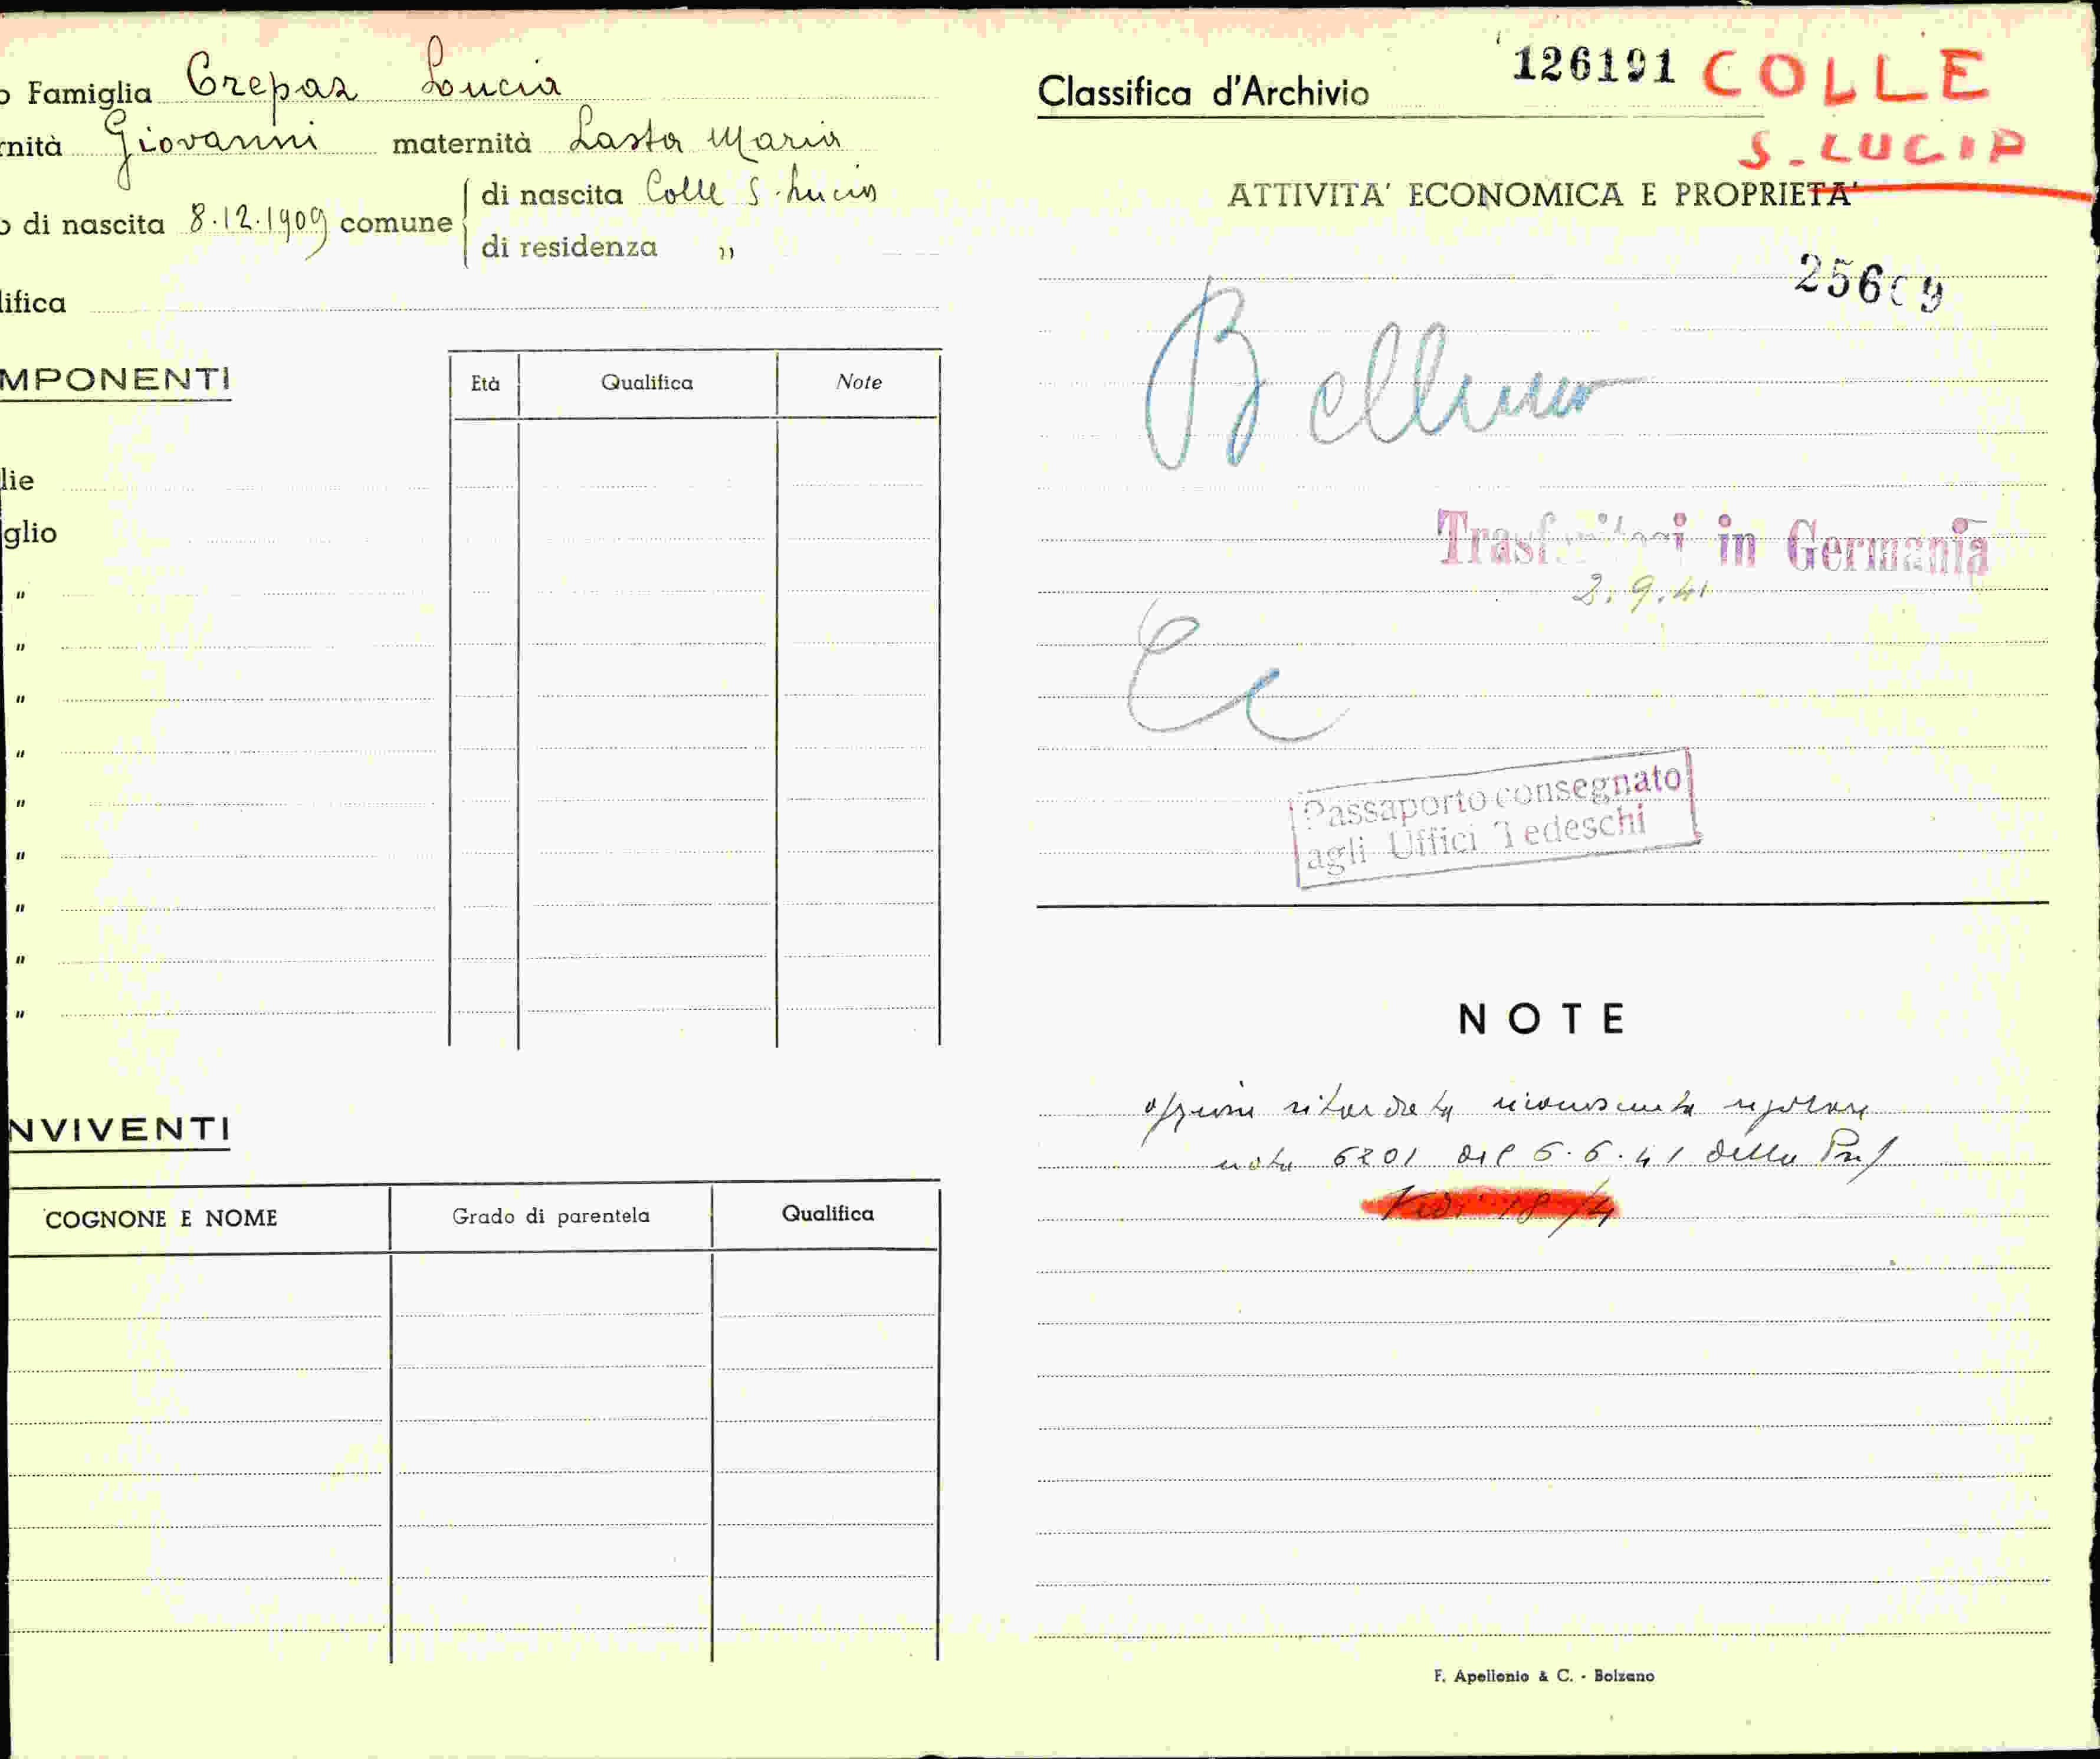 o Famiglia Crepaz Lucia
rnità Giovanni maternità Lasta Maria
o di nascita 8.12.1909 comune
di nascita Colle S. Lucia
di residenza "
lifica
MPONENTI
Età Qualifica Note
lie
glio
"
"
"
"
"
"
"
"
"
NVIVENTI
COGNONE E NOME Grado di parentela Qualifica
Classifica d'Archivio 126191 COLLE
S. LUCIA
ATTIVITA' ECONOMICA E PROPRIETA'
25609
Belluno
Trasferitosi in Germania
2.9.41
Passaporto consegnato
agli Uffici Tedeschi
NOTE
opzione ritardata riconosciuta regolare
nota 6201 del 6.6.41 della Pref
Vedi 18/4
F. Apollonio & C. - Bolzano